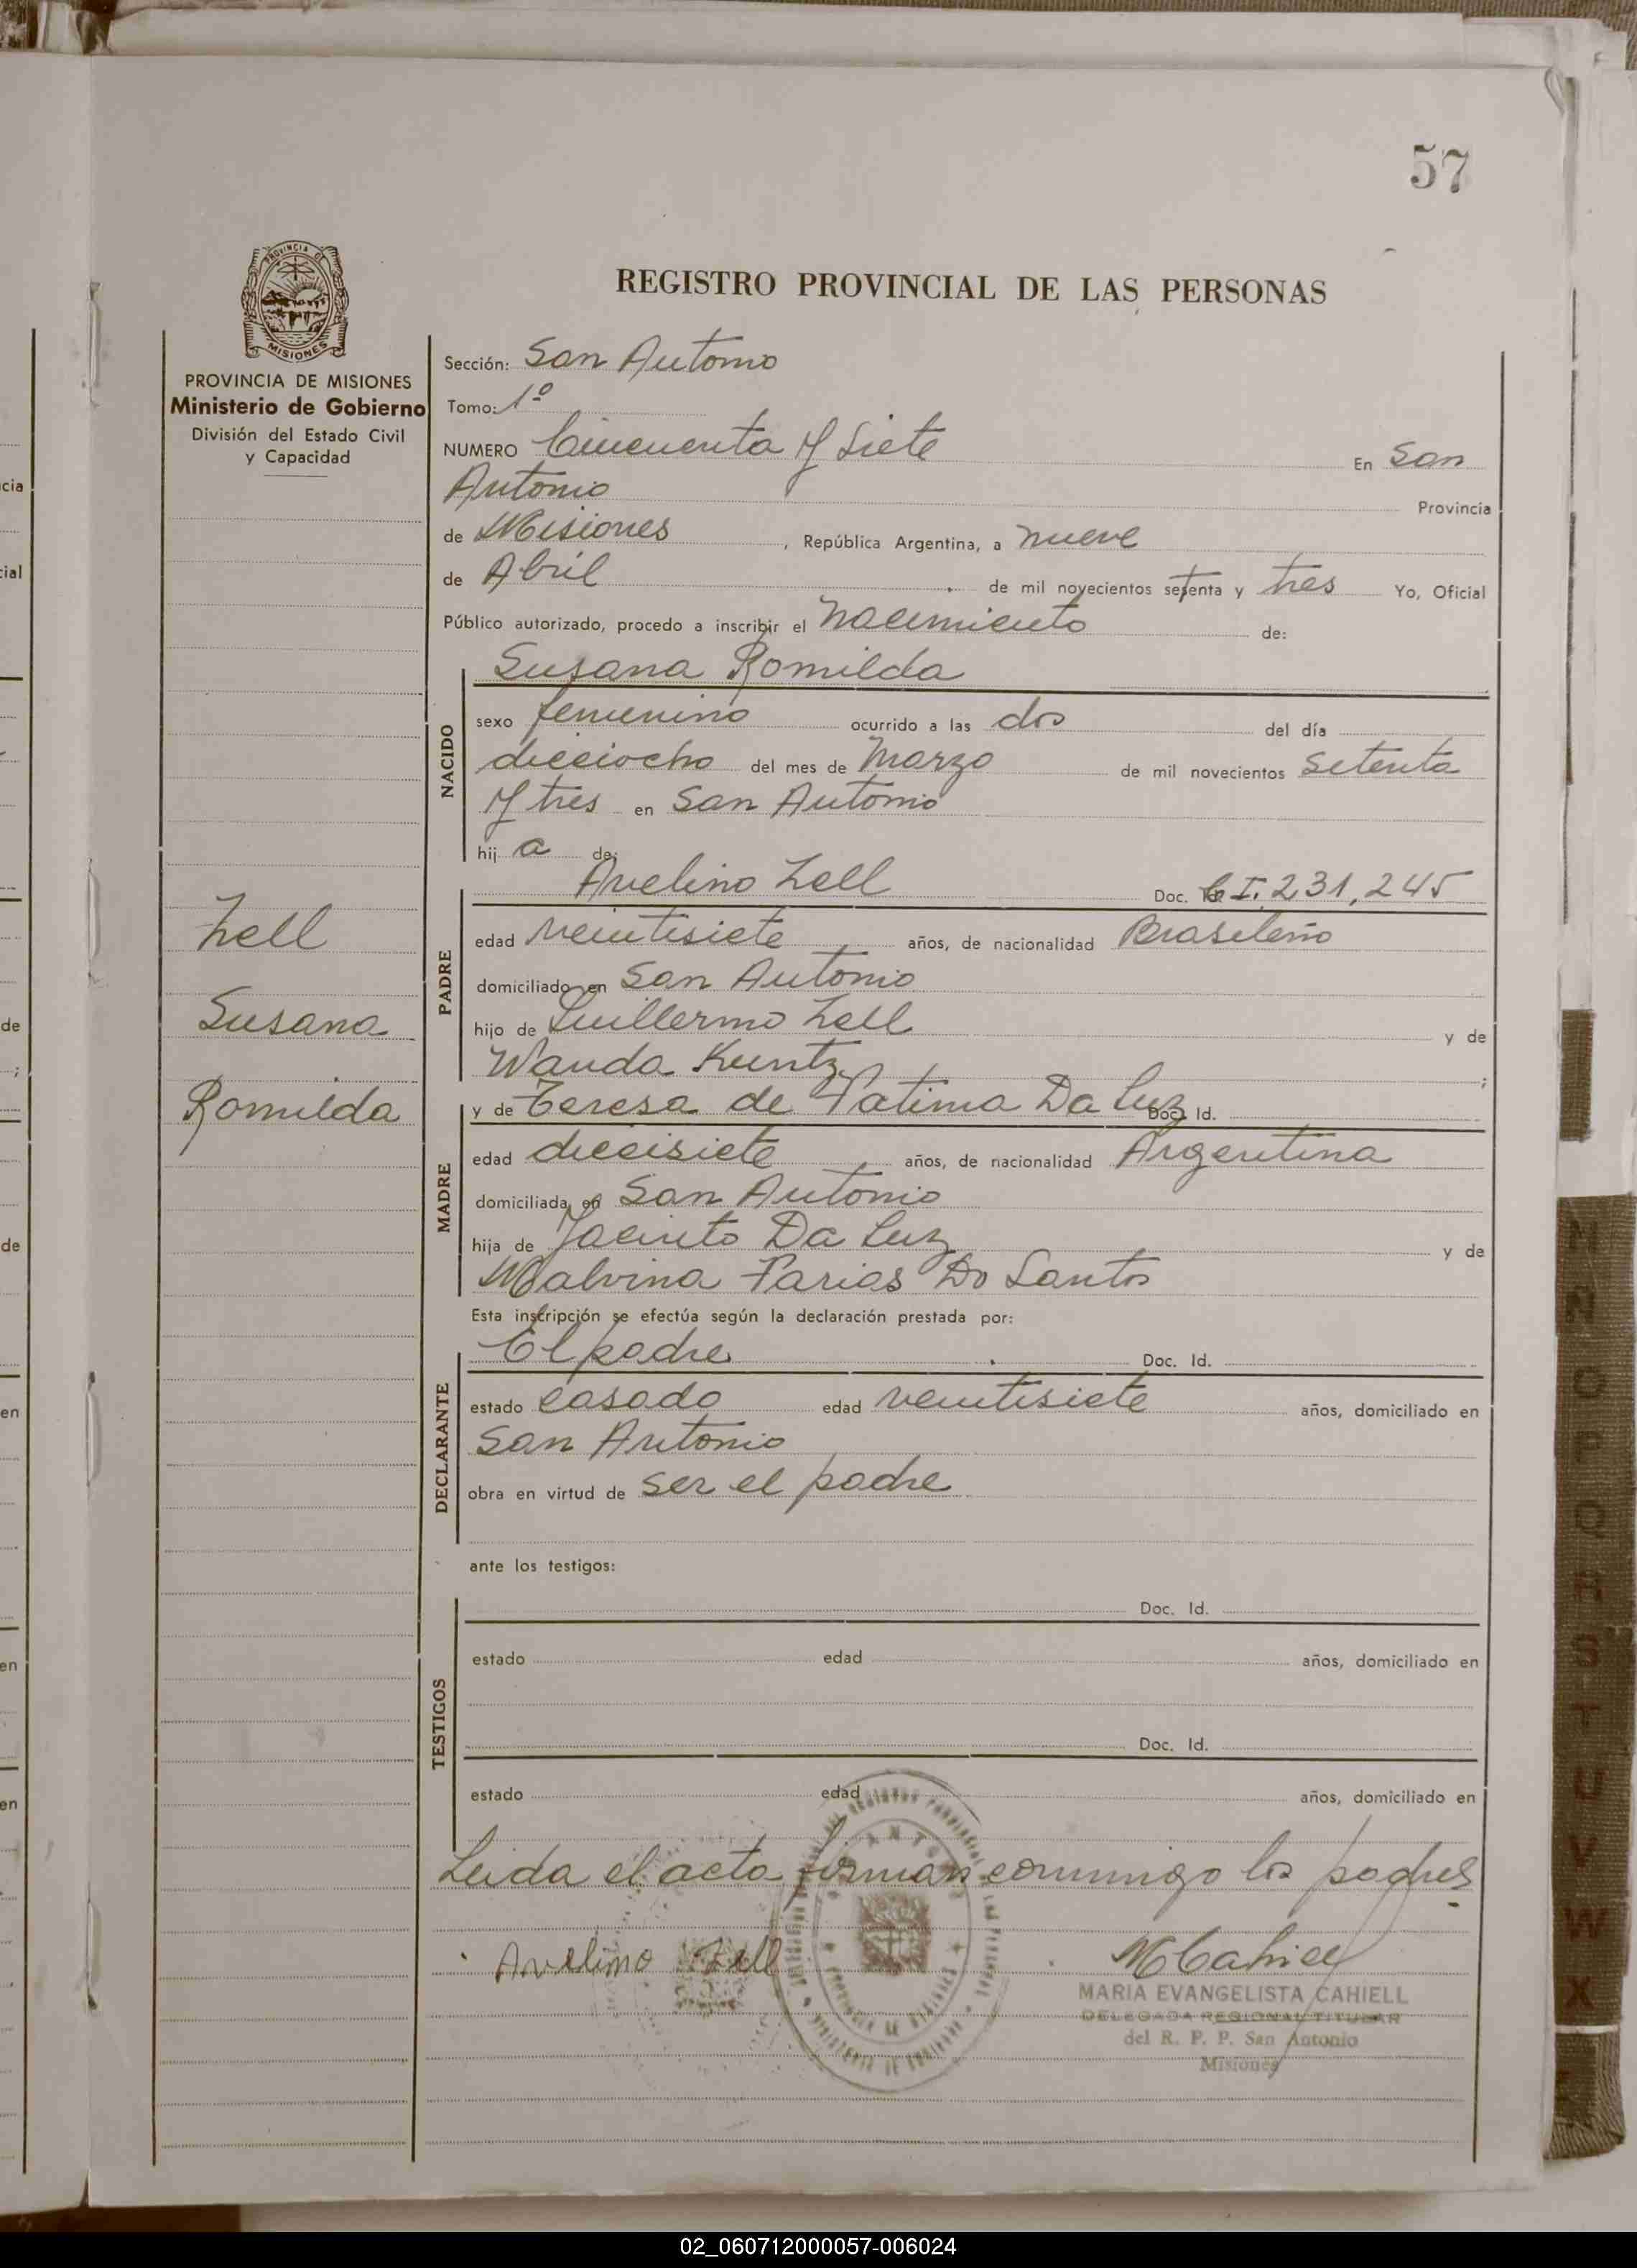 57
REGISTRO PROVINCIAL DE LAS PERSONAS
PROVINCIA DE
MISIONES
PROVINCIA DE MISIONES
Ministerio de Gobierno
División del Estado Civil
y Capacidad
Zell
Susana
Romilda
Sección: San Antonio
Tomo: 1º
NUMERO Cincuenta y Siete En San
Antonio Provincia
de Misiones, República Argentina, a nueve
de Abril de mil novecientos setenta y tres Yo, Oficial
Público autorizado, procedo a inscribir el nacimiento de:
NACIDO
Susana Romilda
sexo femenino ocurrido a las dos del día
dieciocho del mes de Marzo de mil novecientos Setenta
y tres en San Antonio
hij a de:
PADRE
Avelino Zell Doc. C. I. 231,245
edad veintisiete años, de nacionalidad Brasileño
domiciliado en San Antonio
hijo de Guillermo Zell y de
Wanda Kuntz ;
MADRE
y de Teresa de Fatima Da Luz Doc. Id.
edad diecisiete años, de nacionalidad Argentina
domiciliada en San Antonio
hija de Jacinto Da Luz y de
Malvina Farias Do Santos
Esta inscripción se efectúa según la declaración prestada por:
DECLARANTE
El padre Doc. Id.
estado casado edad veintisiete años, domiciliado en
San Antonio
obra en virtud de ser el padre
ante los testigos:
TESTIGOS
Doc. Id.
estado edad años, domiciliado en
Doc. Id.
estado edad años, domiciliado en
Leida el acta firman conmigo los padres
Avelino Zell
MCahiell
MARIA EVANGELISTA CAHIELL
DELEGADA REGIONAL TITULAR
del R. P. P. San Antonio
Misiones
02_060712000057-006024